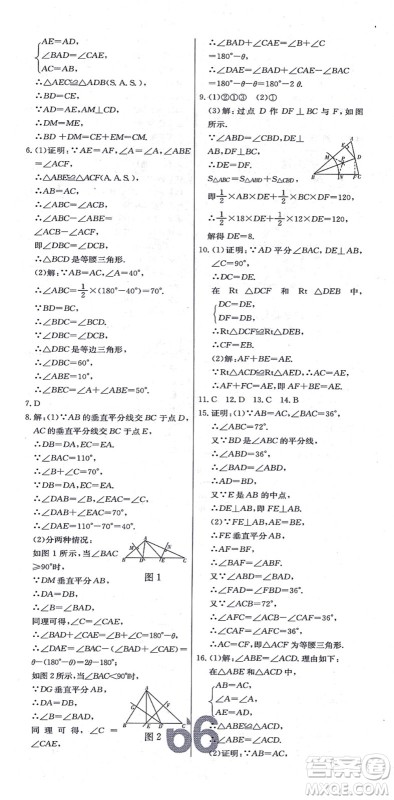 AE=AD,
∠BAD=∠CAE,
AC=AB,
∴△AEC≌△ADB(S.A.S.).
∴BD=CE.
∵AD=AE,AM⊥CD.
∴DM=ME.
∴BD+DM=CE+ME.
6.(1)证明:∵AE=AF,∠A=∠A,∠ABE
=∠ACF,
∴△ABE≌△ACF(A.A.S.).
∴AB=AC.
∴∠ABC=∠ACB.
∴∠ABC-∠ABE=
∠ACB-∠ACF.
即∠DBC=∠DCB.
∴△BCD是等腰三角形.
(2)解:∵AB=AC,∠A=40°,
∴∠ABC=1/2×(180°-40°)=70°.
∴∠DBC=∠DCB.
∴△DBC是等边三角形,
∴∠DBC=60°,
∴∠ABE=10°,
∴∠BEC=∠A+∠ABE=50°.
7.D
8.解:(1)∵AB的垂直平分线交BC于点D,
AC的垂直平分线交BC于点E,
∴DB=DA,EC=EA.
∵∠BAC=110°,
∴∠B+∠C=70°,
∴∠DAB+∠EAC=70°.
∴∠DAE=40°.
(2)分两种情况:
如图1所示,当∠BAC
≥90°时,
∵DM垂直平分AB,
∴DA=DB.
∴∠B=∠BAD.
图1
同理可得,∠C=∠CAE,
∴∠DAE=∠BAC-(∠B+∠C)=
θ-(180°-θ)=2θ-180°;
如图2所示,当∠BAC<90°时,
∵DG垂直平分AB,
∴DA=DB,
∴∠B=∠DAB,
同理可得,∠C=∠CAE.
图2
∴∠BAD+∠CAE=∠B+∠C
=180°-θ,
∴∠DAE=∠BAD+∠CAE-∠BAC
=180°-θ-θ=180°-2θ.
9.(1)①①③ (2)①
(3)解:过点D作DF⊥BC与F,如图
所示.
∵∠ABD=∠CBD,
DE⊥AB,DF⊥BC,
∴DE=DF.
∵S△ABC=S△ABD+S△CBD,
即1/2×AB×DE+1/2×BC×DF=120,
∴1/2×18×DE+1/2×12×DE=120,
解得DE=8.
10.(1)证明:∵AD平分∠BAC,DE⊥AB,
∠C=90°,
∴DC=DE.
在Rt△DCF和Rt△DEB中,
DC=DE,
DF=DB,
∴Rt△DCF≌Rt△DEB.
∴CF=EB.
(2)解:AF+BE=AE.
∵Rt△ACD≌Rt△AED,∴AC=AE.
∴AF+FC=AE,即AF+BE=AE.
11.C 12.D 13.C 14.B
15.证明:(1)∵AB=AC,∠BAC=36°,
∴∠ABC=72°.
又∵BD是∠ABC的平分线,
∴∠ABD=36°.
∴∠BAD=∠ABD.
∴AD=BD.
又∵E是AB的中点,
∴DE⊥AB,即FE⊥AB.
(2)∵FE⊥AB,AE=BE,
∴FE垂直平分AB.
∴AF=BF.
∴∠BAF=∠ABF.
又∵∠ABD=∠BAD,
∴∠FAD=∠FBD=36°.
又∵∠ACB=72°,
∴∠AFC=∠ACB-∠CAF=36°.
∴∠CAF=∠AFC=36°,
∴AC=CF,即△ACF为等腰三角形.
16.(1)解:∠ABE=∠ACD.理由如下:
在△ABE和△ACD中,
AB=AC,
∠A=∠A,
AE=AD,
∴△ABE≌△ACD.
∴∠ABE=∠ACD.
(2)证明:∵AB=AC,